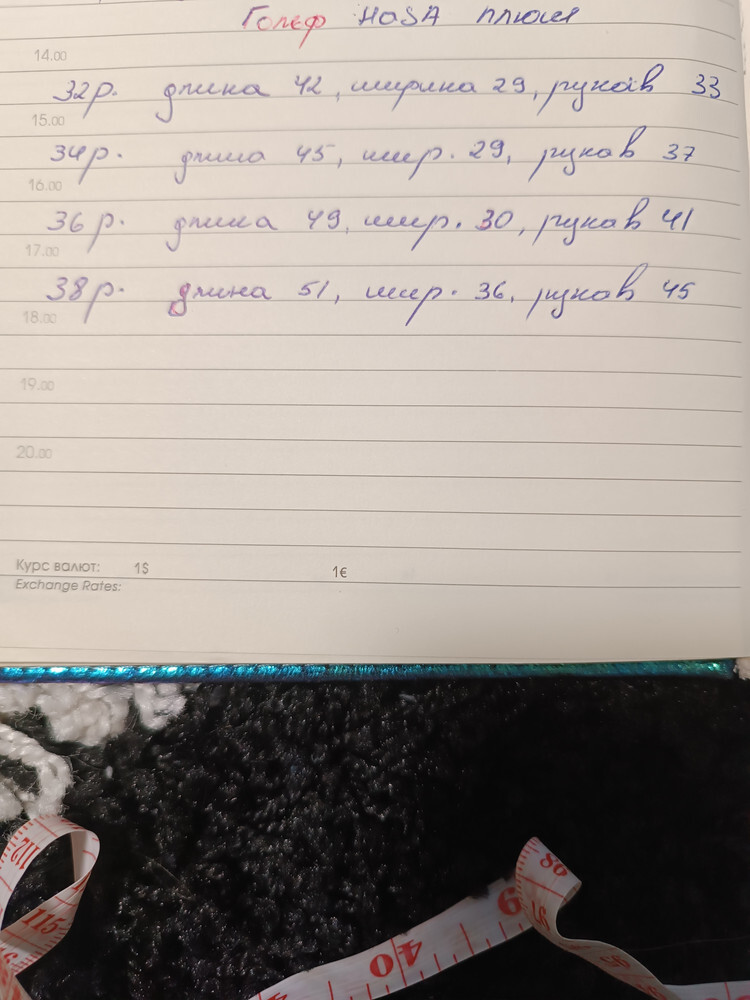 Гольф НаSA плюш
14.00
32р. длина 42, ширина 29, рукав 33
15.00
34р. длина 45, шир. 29, рукав 37
16.00
36р. длина 49, шир. 30, рукав 41
17.00
38р. длина 51, шир. 36, рукав 45
18.00
19.00
20.00
Курс валют: 1$ 1€
Exchange Rates:
112
115
40
98
97
95